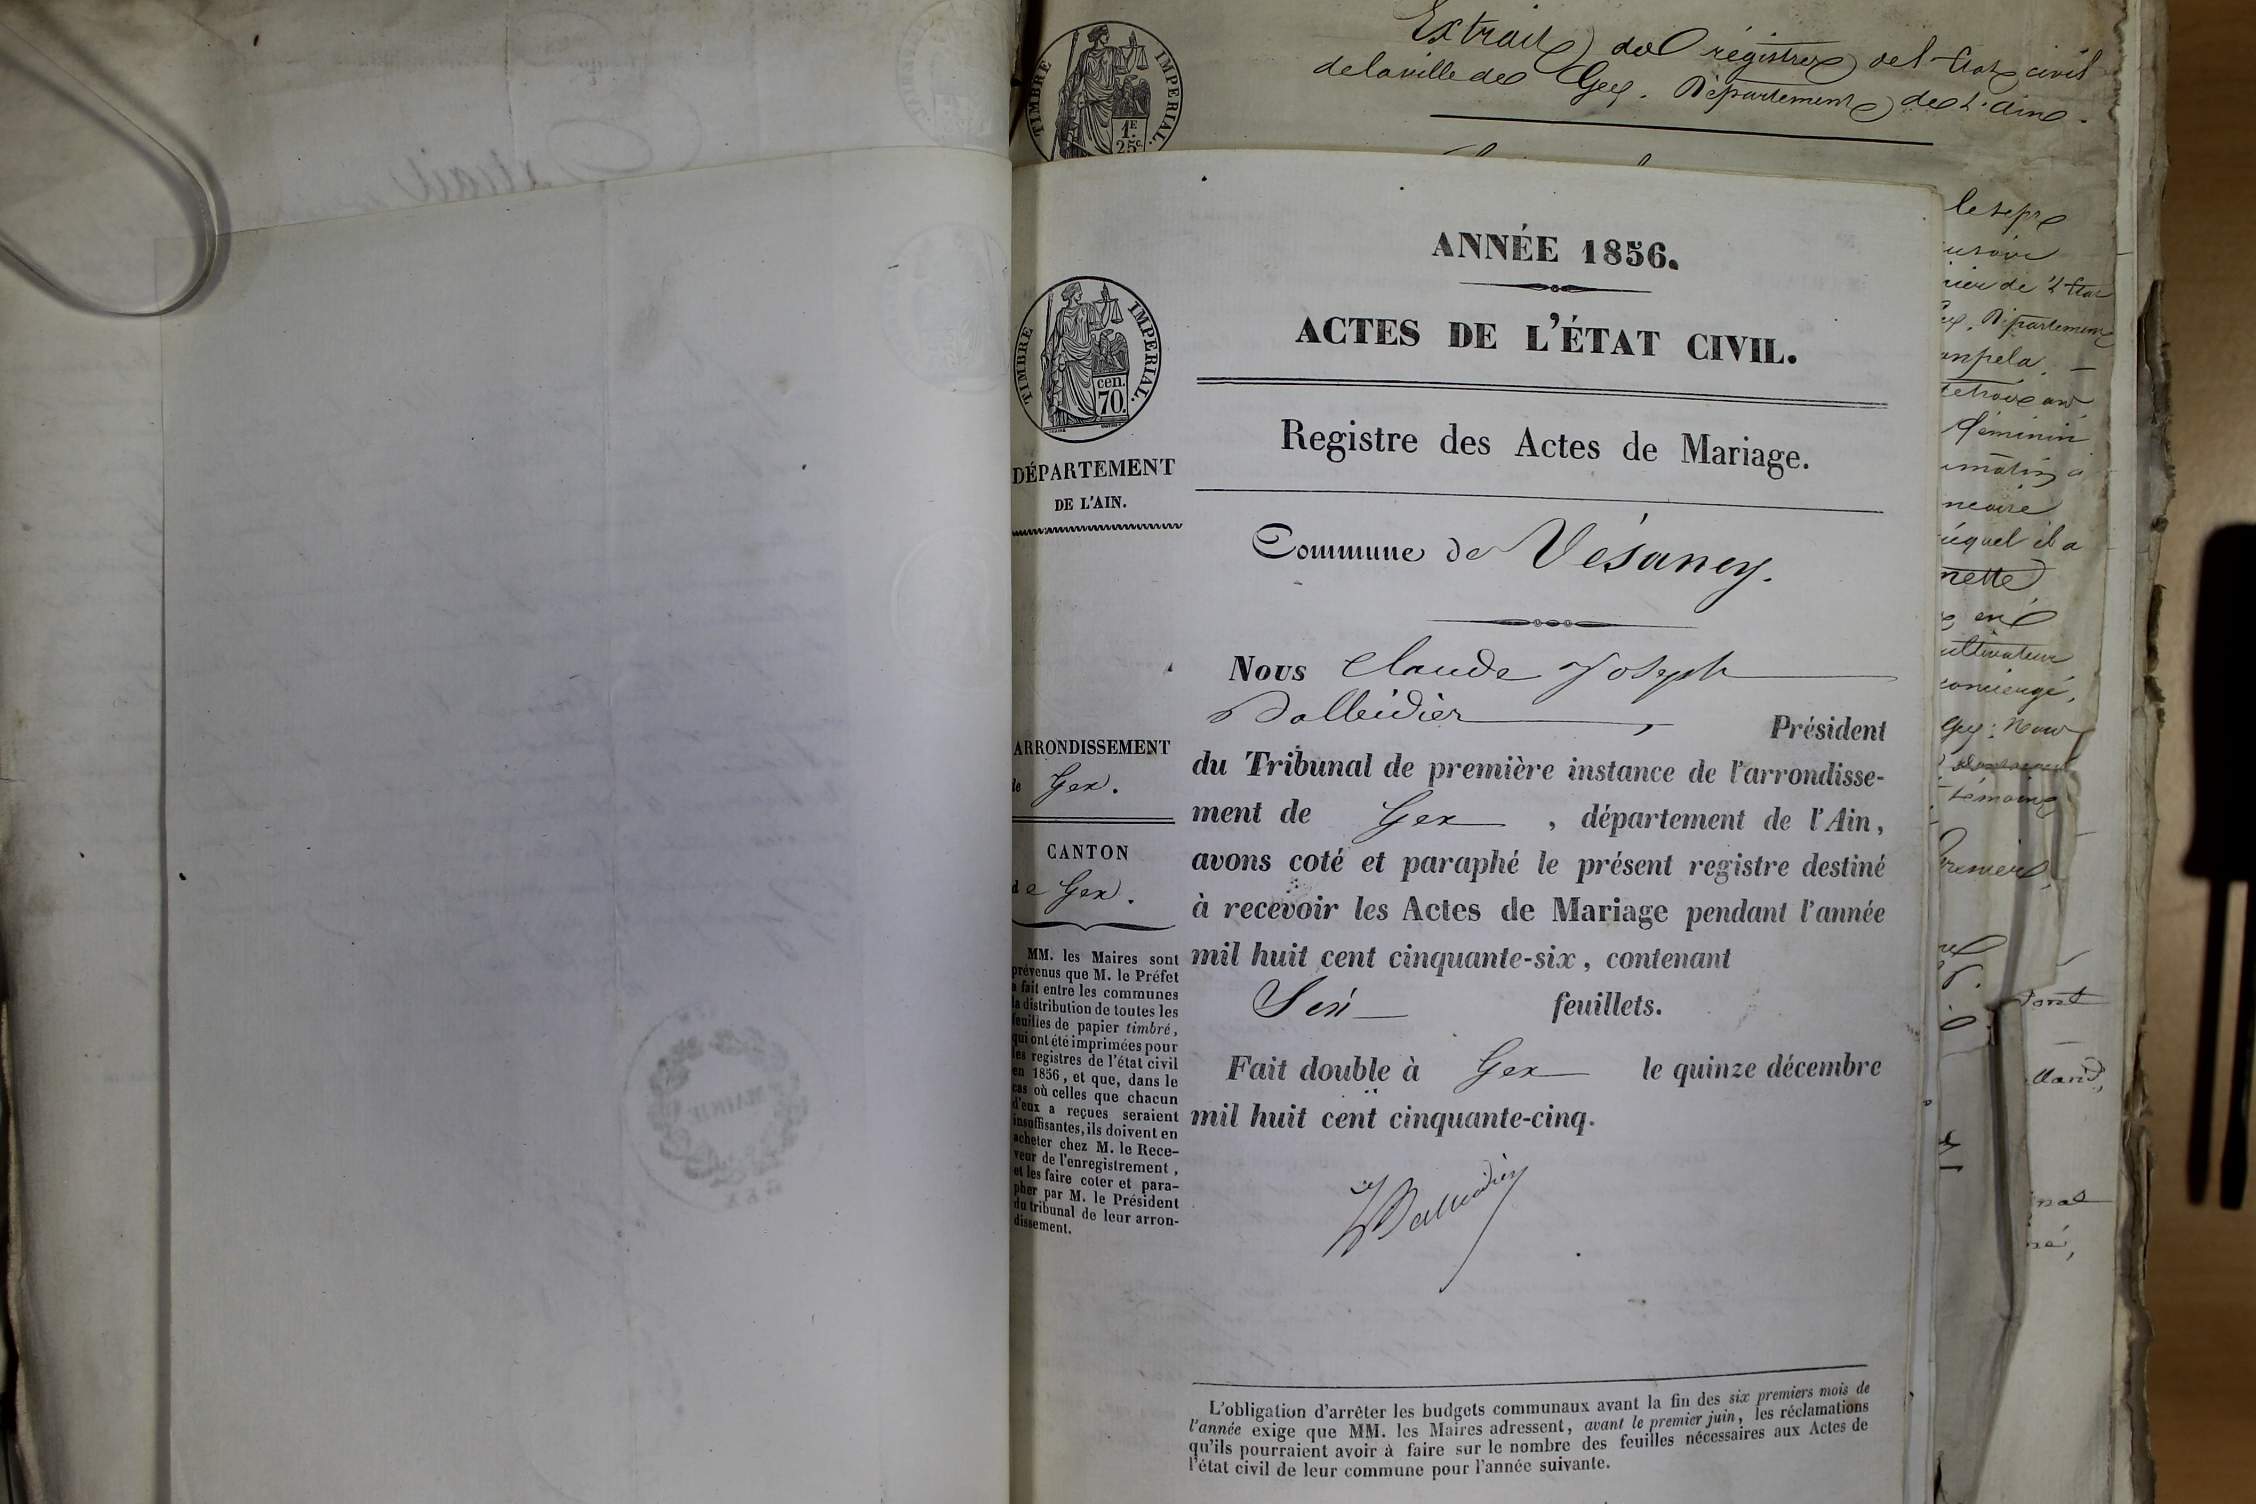 Extrait des régistres de l'Etat civil
de la ville de Gex. Département de l'Ain.
TIMBRE IMPERIAL.
1F.
25c.
ANNÉE 1856.
ACTES DE L'ÉTAT CIVIL.
TIMBRE IMPERIAL.
cen.
70.
Registre des Actes de Mariage.
DÉPARTEMENT
DE L'AIN.
Commune de Vésancy.
Nous Claude Joseph
Balleidier, Président
du Tribunal de première instance de l'arrondisse-
ment de Gex, département de l'Ain,
avons coté et paraphé le présent registre destiné
à recevoir les Actes de Mariage pendant l'année
mil huit cent cinquante-six, contenant
Six feuillets.
Fait double à Gex le quinze décembre
mil huit cent cinquante-cinq.
Balleidier
ARRONDISSEMENT
de Gex.
CANTON
de Gex.
MM. les Maires sont
prévenus que M. le Préfet
a fait entre les communes
la distribution de toutes les
feuilles de papier timbré,
qui ont été imprimées pour
les registres de l'état civil
en 1856, et que, dans le
cas où celles que chacun
d'eux a reçues seraient
insuffisantes, ils doivent en
acheter chez M. le Rece-
veur de l'enregistrement,
et les faire coter et para-
pher par M. le Président
du tribunal de leur arron-
dissement.
L'obligation d'arrêter les budgets communaux avant la fin des six premiers mois de
l'année exige que MM. les Maires adressent, avant le premier juin, les réclamations
qu'ils pourraient avoir à faire sur le nombre des feuilles nécessaires aux Actes de
l'état civil de leur commune pour l'année suivante.
Département
féminin
il a
Now
témoins